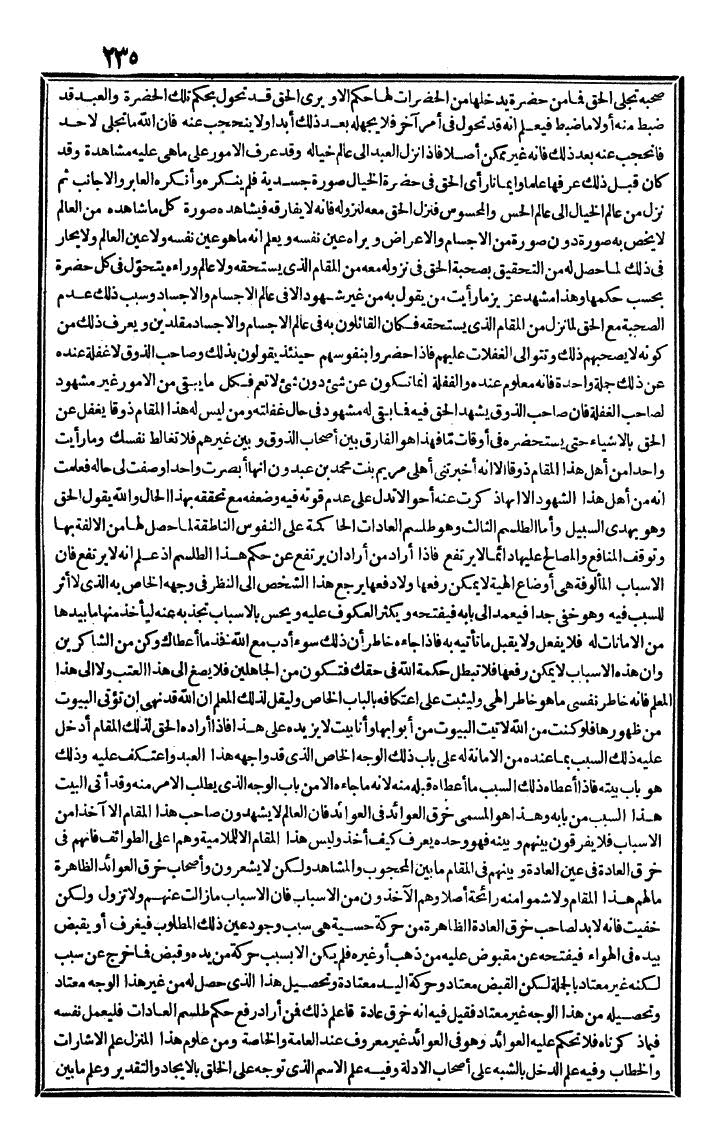 ٢٣٥
صحبه تجلى الحق فما من حضرة يدخلها من الحضرات لها حكم الا ويرى الحق قد تحول بحكم تلك الحضرة والعبد قد
ضبط منه أولا ما ضبط فيعلم انه قد تحول فى أمر آخر فلا يجهله بعد ذلك أبدا ولا ينحجب عنه فان الله ما تجلى لاحد
فانحجب عنه بعد ذلك فانه غير ممكن أصلا فاذا نزل العبد الى عالم خياله وقد عرف الامور على ماهى عليه مشاهدة وقد
كان قبل ذلك عرفها علما وايمانا رأى الحق فى حضرة الخيال صورة جسدية فلم ينسكره وأنكره العابر والاجانب ثم
نزل من عالم الخيال الى عالم الحس والمحسوس فنزل الحق معه لنزوله فانه لا يفارقه فيشاهده صورة كل ما شاهده من العالم
لا يخص به صورة دون صورة من الاجسام والاعراض ويراه عين نفسه ويعلم انه ماهو عين نفسه ولا عين العالم ولا يحار
فى ذلك لما حصل له من التحقيق بصحبة الحق فى نزوله معه من المقام الذى يستحقه ولا عالم وراءه يتحوّل فى كل حضرة
بحسب حكمها وهذا مشهد عزيز مارأيت من يقول به من غير شهود الا فى عالم الاجسام والاجساد وسبب ذلك عدم
الصحبة مع الحق لما نزل من المقام الذى يستحقه فكان القائلون به فى عالم الاجسام والاجساد مقلدين ويعرف ذلك من
كونه لا يصحبهم ذلك وتتوالى الغفلات عليهم فاذا حضروا بنفوسهم حينئذ يقولون بذلك وصاحب الذوق لا غفلة عنده
عن ذلك جملة واحدة فانه معلوم عنده والغفلة انما تكون عن شئ دون شئ لا تعم فكل ما يبقى من الامور غير مشهود
لصاحب الغفلة فان صاحب الذوق يشهد الحق فيه فما بقى له مشهود فى حال غفلته ومن ليس له هذا المقام ذوقا يغفل عن
الحق بالاشياء حتى يستحضره فى أوقات مّا فهذا هو الفارق بين أصحاب الذوق وبين غيرهم فلا تغالط نفسك وما رأيت
واحدا من أهل هذا المقام ذوقا الا انه أخبرتنى أهلى مريم بنت محمد بن عبدون انها أبصرت واحدا وصفت لى حاله فعلمت
انه من أهل هذا الشهود الا انها ذكرت عنه أحوالا تدل على عدم قوته فيه وضعفه مع تحققه بهذا الحال والله يقول الحق
وهو يهدى السبيل وأما الطلسم الثالث وهو طلسم العادات الحاكمة على النفوس الناطقة لما حصل لها من الالفة بها
وتوقف المنافع والمصالح عليها دائما لا يرتفع فاذا أراد من أراد ان يرتفع عن حكم هذا الطلسم اذ علم انه لا يرتفع فان
الاسباب المألوفة هى أوضاع الهية لا يمكن رفعها ولا دفعها يرجع هذا الشخص الى النظر فى وجهه الخاص به الذى لا أثر
للسبب فيه وهو خفى جدا فيعمد الى بابه فيفتحه ويكثر العكوف عليه ويحس بالاسباب تجذبه عنه ليأخذ منها ما بيدها
من الامانات له فلا يفعل ولا يقبل ما تأتيه به فاذا جاءه خاطر أن ذلك سوء أدب مع الله فخذ ما أعطاك وكن من الشاكرين
وان هذه الاسباب لا يمكن رفعها فلا تبطل حكمة الله فى حقك فتكون من الجاهلين فلا يصغ الى هذا العتب ولا الى هذا
المعلم فانه خاطر نفسى ماهو خاطر الهى وليثبت على اعتكافه بالباب الخاص وليقل لذلك المعلم ان الله قد نهى ان نؤتى البيوت
من ظهورها فلو كنت من الله لاتيت البيوت من أبوابها وأنا بيت لا يزيده على هذا فاذا أراده الحق لذلك المقام أدخل
عليه ذلك السبب بما عنده من الامانة له على باب ذلك الوجه الخاص الذى قد واجهه هذا العبد واعتكف عليه وذلك
هو باب بيته فاذا أعطاه ذلك السبب ما أعطاه قبله منه لانه ما جاءه الا من باب الوجه الذى يطلب الامر منه وقد أتى البيت
هذا السبب من بابه وهذا هو المسمى خرق العوائد فى العوائد فان العالم لا يشهدون صاحب هذا المقام الا آخذا من
الاسباب فلا يفرقون بينهم وبينه فهو وحده يعرف كيف أخذ وليس هذا المقام الا للملامية وهم أعلى الطوائف فانهم فى
خرق العادة فى عين العادة وبينهم فى المقام ما بين المحجوب والمشاهد ولكن لا يشعرون وأصحاب خرق العوائد الظاهرة
مالهم هذا المقام ولا شموا منه رائحة أصلا وهم الآخذون من الاسباب فان الاسباب مازالت عنهم ولا تزول ولكن
خفيت فانه لا بد لصاحب خرق العادة الظاهرة من حركة حسية هى سبب وجود عين ذلك المطلوب فيغرف أو يقبض
بيده فى الهواء فيفتحه عن مقبوض عليه من ذهب أو غيره فلم يكن الا بسبب حركة من يده وقبض فما خرج عن سبب
لكنه غير معتاد بالجملة لكن القبض معتاد وحركة اليد معتادة وتحصيل هذا الذى حصل له من غير هذا الوجه معتاد
وتحصيله من هذا الوجه غير معتاد فقيل فيه انه خرق عادة فاعلم ذلك فمن أراد رفع حكم طلسم العادات فليعمل نفسه
فيما ذكرناه فلا تحكم عليه العوائد وهو فى العوائد غير معروف عند العامة والخاصة ومن علوم هذا المنزل علم الاشارات
والخطاب وفيه علم الدخل بالشبه على أصحاب الادلة وفيه علم الاسم الذى توجه على الخلق بالايجاد والتقدير وعلم ما بين